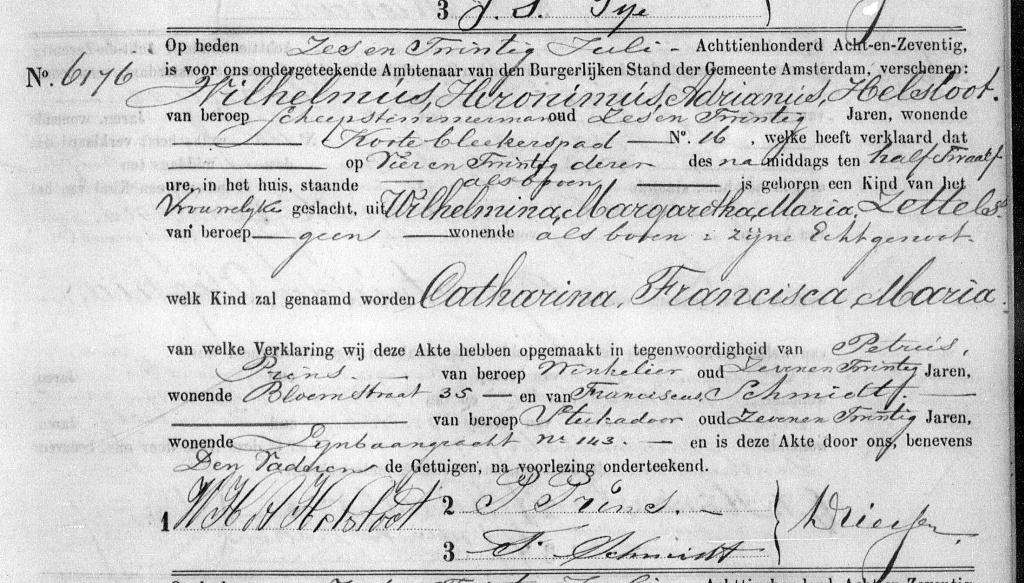 3 J. S. Tye
Op heden Zes en Twintig Juli - Achttienhonderd Acht-en-Zeventig,
is voor ons ondergeteekende Ambtenaar van den Burgerlijken Stand der Gemeente Amsterdam, verschenen:
No. 6176 Wilhelmus, Hironimus, Adrianus, Helsloot.
van beroep Scheepstimmerman oud Zes en Twintig Jaren, wonende
Korte bleekerspad No. 16, welke heeft verklaard dat
op Vier en Twintig dezer des namiddags ten half twaalf
ure, in het huis, staande als boven is geboren een Kind van het
Vrouwelijke geslacht, uit Wilhelmina, Margaretha, Maria, Zettels.
van beroep geen wonende als boven : zijne Echtgenoot.
welk Kind zal genaamd worden Catharina, Francisca Maria.
van welke Verklaring wij deze Akte hebben opgemaakt in tegenwoordigheid van Petrus,
Prins van beroep Winkelier oud Zeven en Twintig Jaren,
wonende Bloemstraat 35 — en van Franciscus, Schmidt.
van beroep Stukadoor oud Zeven en Twintig Jaren,
wonende Lijnbaangracht no 143. — en is deze Akte door ons, benevens
Den Vader en de Getuigen, na voorlezing onderteekend.
1 W H A Helsloot 2 P Prins. -
3 F. Schmidt
Achttienhonderd Acht-en-Zeventig